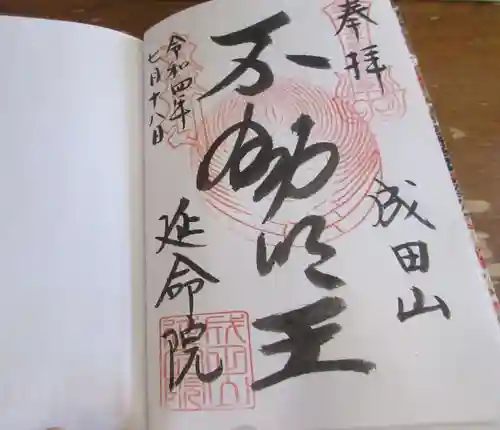 奉拝
成田山
不動明王
令和四年
七月十八日
延命院